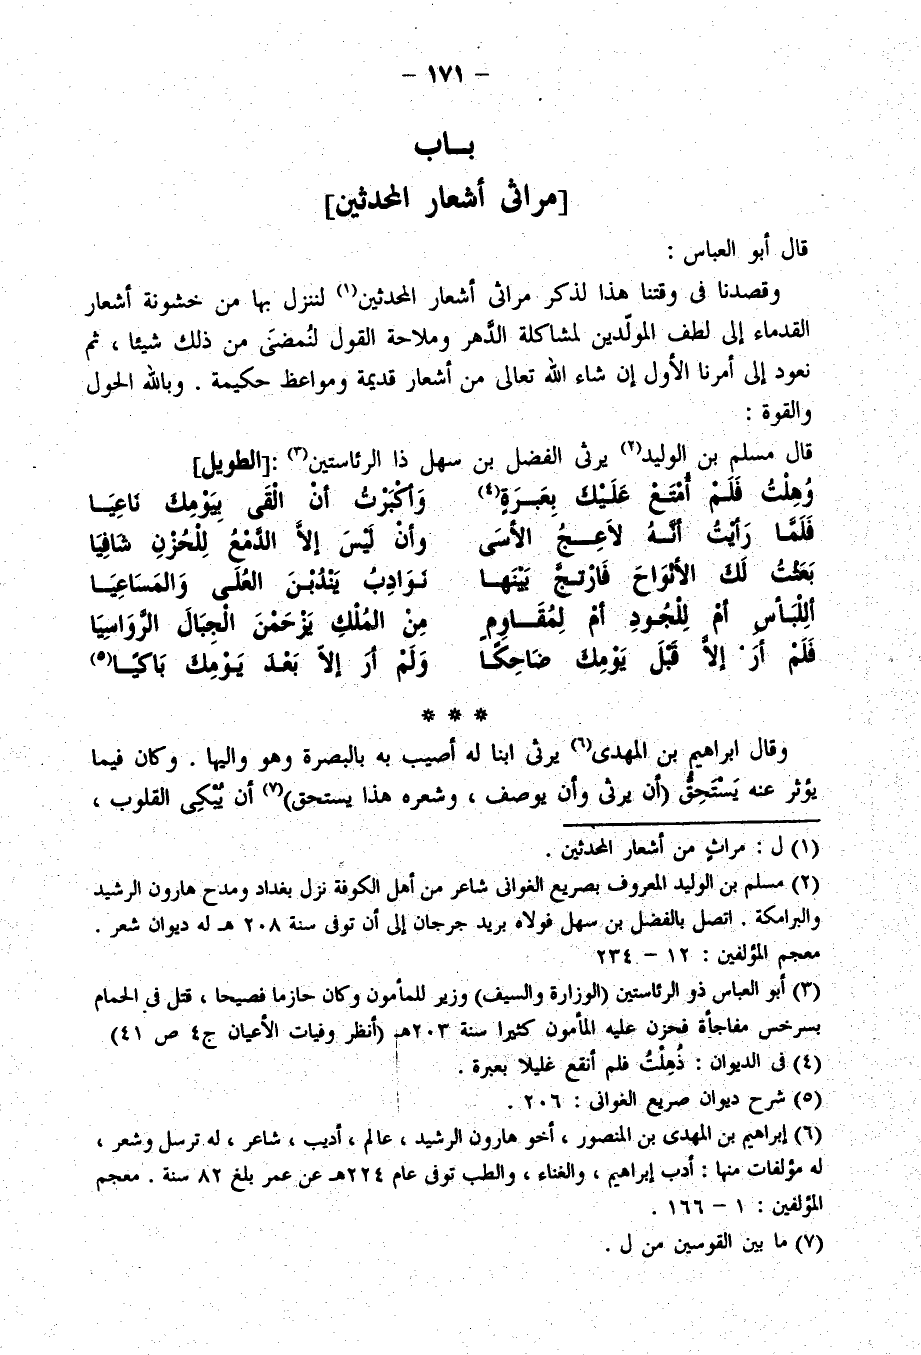 - ١٧١ -
بــاب
[مراثى أشعار المحدثين]
قال أبو العباس :
وقصدنا فى وقتنا هذا لذكر مراثى أشعار المحدثين(١) لننزل بها من خشونة أشعار
القدماء إلى لطف المولّدين لمشاكلة الدَّهر وملاحة القول لنُمضىَ من ذلك شيئا ، ثم
نعود إلى أمرنا الأول إن شاء الله تعالى من أشعار قديمة ومواعظ حكيمة . وبالله الحول
والقوة :
قال مسلم بن الوليد(٢) يرثى الفضل بن سهل ذا الرئاستين(٣) :[الطويل]
وُهِلْتُ فَلَمْ أُمْتَعْ عَلَيْكَ بِعَبـرَةٍ(٤) وَأكْبَرْتُ أنْ الْقَى بِيَوْمِكَ نَاعِيَـا
فَلَمَّـا رَأيْتُ أنَّـهُ لاَعِـجُ الأسَى وأنْ لَيْسَ إلاَّ الدَّمْعُ لِلْحُزْنِ شَافِيَا
بَعَثْتُ لَكَ الأَنْوَاحَ فَارْتجَّ بَيْنَهـا نَـوَادِبُ يَنْدُبْـنَ العُلَـى وَالمَسَاعِيَـا
أَلِلْبَأسِ أمْ لِلْجُـودِ أمْ لِمُقَـاوِمٍ مِنْ المُلْكِ يَزْحَمْنَ الْجِبَالَ الرَّوَاسِيَا
فَلَمْ أرَ إلاَّ قَبْلَ يَوْمِكَ ضَاحِكًـا وَلَمْ أرَ إلاّ بَعْـدَ يَـوْمِكَ بَاكيًـا(٥)
* * *
وقال ابراهيم بن المهدى(٦) يرثى ابنا له أصيب به بالبصرة وهو واليها . وكان فيما
يؤثر عنه يَسْتَحِقُّ (أن يرثى وأن يوصف ، وشعره هذا يستحق)(٧) أن يُبْكِى القلوب ،
(١) ل : مراثٍ من أشعار المحدثين .
(٢) مسلم بن الوليد المعروف بصريع الغوانى شاعر من أهل الكوفة نزل بغداد ومدح هارون الرشيد
والبرامكة . اتصل بالفضل بن سهل فولاه بريد جرجان إلى أن توفى سنة ٢٠٨ هـ له ديوان شعر .
معجم المؤلفين : ١٢ - ٢٣٤
(٣) أبو العباس ذو الرئاستين (الوزارة والسيف) وزير للمأمون وكان حازما فصيحا ، قتل فى الحمام
بسرخس مفاجأة فحزن عليه المأمون كثيرا سنة ٢٠٣هـ (أنظر وفيات الأعيان ج٤ ص ٤١)
(٤) فى الديوان : ذُهِلْتُ فلم أنقع غليلا بعبرة .
(٥) شرح ديوان صريع الغوانى : ٢٠٦ .
(٦) إبراهيم بن المهدى بن المنصور ، أخو هارون الرشيد ، عالم ، أديب ، شاعر ، له ترسل وشعر ،
له مؤلفات منها : أدب إبراهيم ، والغناء ، والطب توفى عام ٢٢٤هـ عن عمر بلغ ٨٢ سنة . معجم
المؤلفين : ١ - ١٦٦ .
(٧) ما بين القوسين من ل .